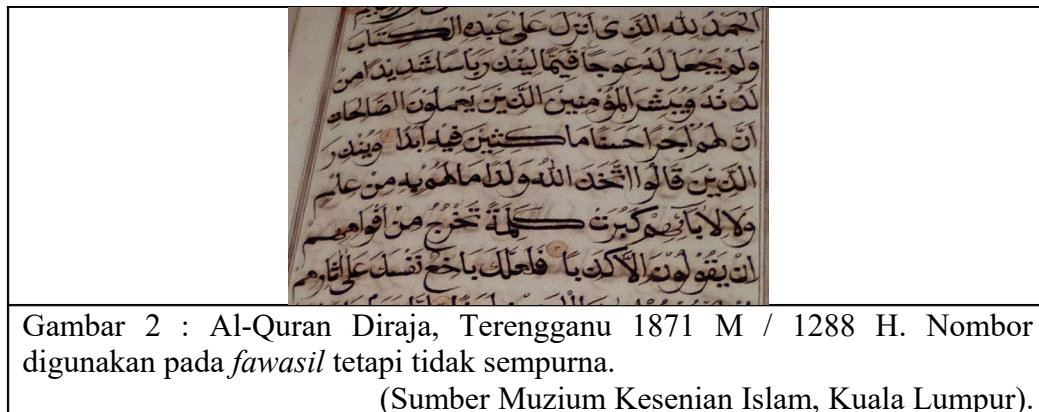 الحمد لله الذي أنزل على عبده الكتاب
ولم يجعل له عوجا قيما لينذر بأسا شديدا من
لدنه ويبشر المؤمنين الذين يعملون الصالحات
أن لهم أجرا حسنا ماكثين فيه أبدا وينذر
الذين قالوا اتخذ الله ولدا مالهم به من علم
ولا لآبائهم كبرت كلمة تخرج من أفواههم
إن يقولون إلا كذبا ٣ فلعلك باخع نفسك على آثارهم
Gambar 2 : Al-Quran Diraja, Terengganu 1871 M / 1288 H. Nombor
digunakan pada fawasil tetapi tidak sempurna.
(Sumber Muzium Kesenian Islam, Kuala Lumpur).